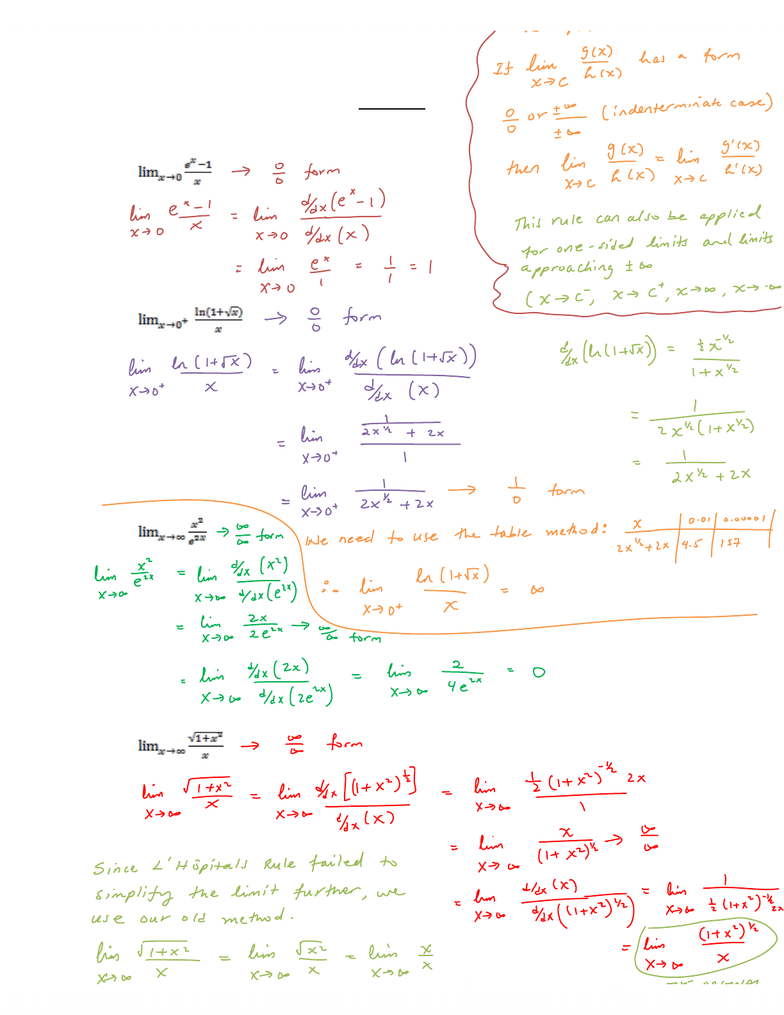 If lim x→c g(x)/h(x) has a form
0/0 or ±∞/±∞ (indenterminate case)
then lim x→c g(x)/h(x) = lim x→c g'(x)/h'(x)
This rule can also be applied
for one-sided limits and limits
approaching ±∞
(x→c⁻, x→c⁺, x→∞, x→-∞
lim x→0 (eˣ−1)/x → 0/0 form
lim x→0 (eˣ−1)/x = lim x→0 d/dx(eˣ−1) / d/dx(x)
= lim x→0 eˣ/1 = 1/1 = 1
lim x→0⁺ ln(1+√x)/x → 0/0 form
lim x→0⁺ ln(1+√x)/x = lim x→0⁺ d/dx(ln(1+√x)) / d/dx(x)
= lim x→0⁺ (1/(2x^½ + 2x))/1
= lim x→0⁺ 1/(2x^½ + 2x) → 1/0 form
d/dx(ln(1+√x)) = ½x^-½ / (1+x^½)
= 1/(2x^½(1+x^½))
= 1/(2x^½ + 2x)
We need to use the table method:
x | 0.01 | 0.00001
2x^½+2x | 4.5 | 157
∴ lim x→0⁺ ln(1+√x)/x = ∞
lim x→∞ x²/e²ˣ → ∞/∞ form
lim x→∞ x²/e²ˣ = lim x→∞ d/dx(x²) / d/dx(e²ˣ)
= lim x→∞ 2x/2e²ˣ → ∞/∞ form
= lim x→∞ d/dx(2x) / d/dx(2e²ˣ) = lim x→∞ 2/4e²ˣ = 0
lim x→∞ √(1+x²)/x → ∞/∞ form
lim x→∞ √(1+x²)/x = lim x→∞ d/dx[(1+x²)^½] / d/dx(x) = lim x→∞ ½(1+x²)^-½ 2x / 1
= lim x→∞ x/(1+x²)^½ → ∞/∞
= lim x→∞ d/dx(x) / d/dx((1+x²)^½) = lim x→∞ 1/(½(1+x²)^-½ 2x)
= lim x→∞ (1+x²)^½/x
Since L'Hôpitals Rule failed to
simplify the limit further, we
use our old method.
lim x→∞ √(1+x²)/x = lim x→∞ √x²/x = lim x→∞ x/x